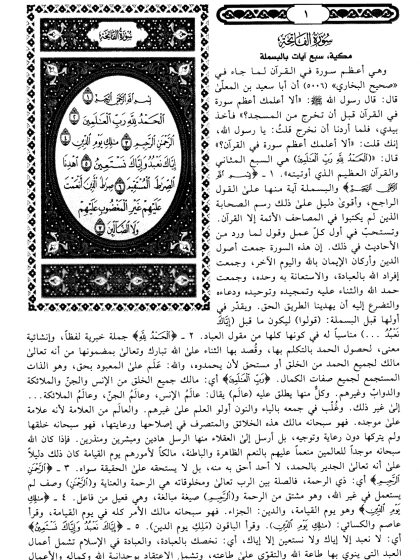 ١
سورة الفاتحة
سُورَةُ الْفَاتِحَةِ
مكية، سبع آيات بالبسملة
وهي أعظم سورة في القرآن لما جاء في
«صحيح البخاري» (٥٠٠٦) أن أبا سعيد بن المعلّىٰ
قال: قال رسول الله ﷺ: «ألا أعلمك أعظم سورة
في القرآن قبل أن تخرج من المسجد؟» فأخذ
بيدي، فلما أردنا أن نخرج قلتُ: يا رسول الله،
إنك قلت: «ألا أعلمك أعظم سورة في القرآن؟»
قال: ﴿الْحَمْدُ لِلَّهِ رَبِّ الْعَالَمِينَ﴾ هي السبع المثاني
والقرآن العظيم الذي أوتيته». ١ ـ ﴿بِسْمِ اللَّهِ
الرَّحْمَٰنِ الرَّحِيمِ﴾ والبسملة آية منها علىٰ القول
الراجح، وأقوىٰ دليل علىٰ ذلك رسم الصحابة
الذين لم يكتبوا في المصاحف الأئمة إلا القرآن.
وتستحبّ في أول كلّ عمل وقول لما ورد من
الأحاديث في ذلك. إن هذه السورة جمعت أصول
الدين وأركان الإيمان بالله واليوم الآخر، وجمعت
إفراد الله بالعبادة، والاستعانة به وحده، وجمعت
حمد الله والثناء عليه وتمجيده وتوحيده ودعاءه
والتضرع إليه أن يهدينا الطريق الحق. ويقدّر في
أولها قبل البسملة: (قولوا) ليكون ما قبل ﴿إِيَّاكَ
نَعْبُدُ ...﴾ مناسباً له في كونها كلها من مقول العباد. ٢ ـ ﴿الْحَمْدُ لِلَّهِ﴾ جملة خبرية لفظاً، وإنشائية
معنى، لحصول الحمد بالتكلم بها، وقُصد بها الثناء علىٰ الله تبارك وتعالىٰ بمضمونها من أنه تعالىٰ
مالك لجميع الحمد من الخلق أو مستحق لأن يحمدوه، والله: عَلَم علىٰ المعبود بحق، وهو الذات
المستجمع لجميع صفات الكمال. ﴿رَبِّ الْعَالَمِينَ﴾ أي: مالك جميع الخلق من الإنس والجنّ والملائكة
والدواب وغيرهم. وكلٌّ منها يطلق عليه (عالَم) يقال: عالَمُ الإنس، وعالمُ الجنّ، وعالمُ الملائكة...
إلىٰ غير ذلك. وغُلّب في جمعه بالياء والنون أولو العلم علىٰ غيرهم. والعالَم من العلامة لأنه علامة
علىٰ موجده. فهو سبحانه مالك هذه الخلائق والمتصرف في إصلاحها ورعايتها، فهو سبحانه خلقها
ولم يتركها دون رعاية وتوجيه، بل أرسل إلىٰ العقلاء منها الرسل هادين ومبشرين ومنذرين. فإذا كان الله
سبحانه موجداً للعالمين منعماً عليهم بالنعم الظاهرة والباطنة، مالكاً لأمورهم يوم القيامة كان ذلك دليلاً
علىٰ أنه تعالىٰ الجدير بالحمد، لا أحد أحق به منه، بل لا يستحقه علىٰ الحقيقة سواه. ٣ ـ ﴿الرَّحْمَٰنِ
الرَّحِيمِ﴾ أي: ذي الرحمة، فالصلة بين الرب تعالىٰ ومخلوقاته هي الرحمة والعناية و﴿الرَّحْمَٰنِ﴾ وصف لم
يستعمل في غير الله، وهو مشتق من الرحمة و﴿الرَّحِيمِ﴾ صيغة مبالغة، وهي فعيل من فاعل. ٤ ـ ﴿مَٰلِكِ
يَوْمِ الدِّينِ﴾ وهو يوم القيامة، والدين: الجزاء. فهو سبحانه مالك الأمر كله في يوم القيامة، وقرأ
عاصم والكسائي: ﴿مَٰلِكِ يَوْمِ الدِّينِ﴾. وقرأ الباقون ﴿مَلِكِ يوم الدين﴾. ٥ ـ ﴿إِيَّاكَ نَعْبُدُ وَإِيَّاكَ نَسْتَعِينُ﴾
أي: لا نعبد إلا إياك ولا نستعين إلا إياك، أي: نخصك بالعبادة، والعبادة في الإسلام تشمل أعمال
العبد التي ينوي بها طاعة الله والتقوّي علىٰ طاعته، وتشمل الاعتقاد بوحدانية الله وكماله والأعمال
بِسْمِ اللَّهِ الرَّحْمَٰنِ الرَّحِيمِ ١
الْحَمْدُ لِلَّهِ رَبِّ الْعَٰلَمِينَ ٢
الرَّحْمَٰنِ الرَّحِيمِ ٣ مَٰلِكِ يَوْمِ الدِّينِ ٤
إِيَّاكَ نَعْبُدُ وَإِيَّاكَ نَسْتَعِينُ ٥ اهْدِنَا
الصِّرَٰطَ الْمُسْتَقِيمَ ٦ صِرَٰطَ الَّذِينَ أَنْعَمْتَ
عَلَيْهِمْ غَيْرِ الْمَغْضُوبِ عَلَيْهِمْ
وَلَا الضَّالِّينَ ٧